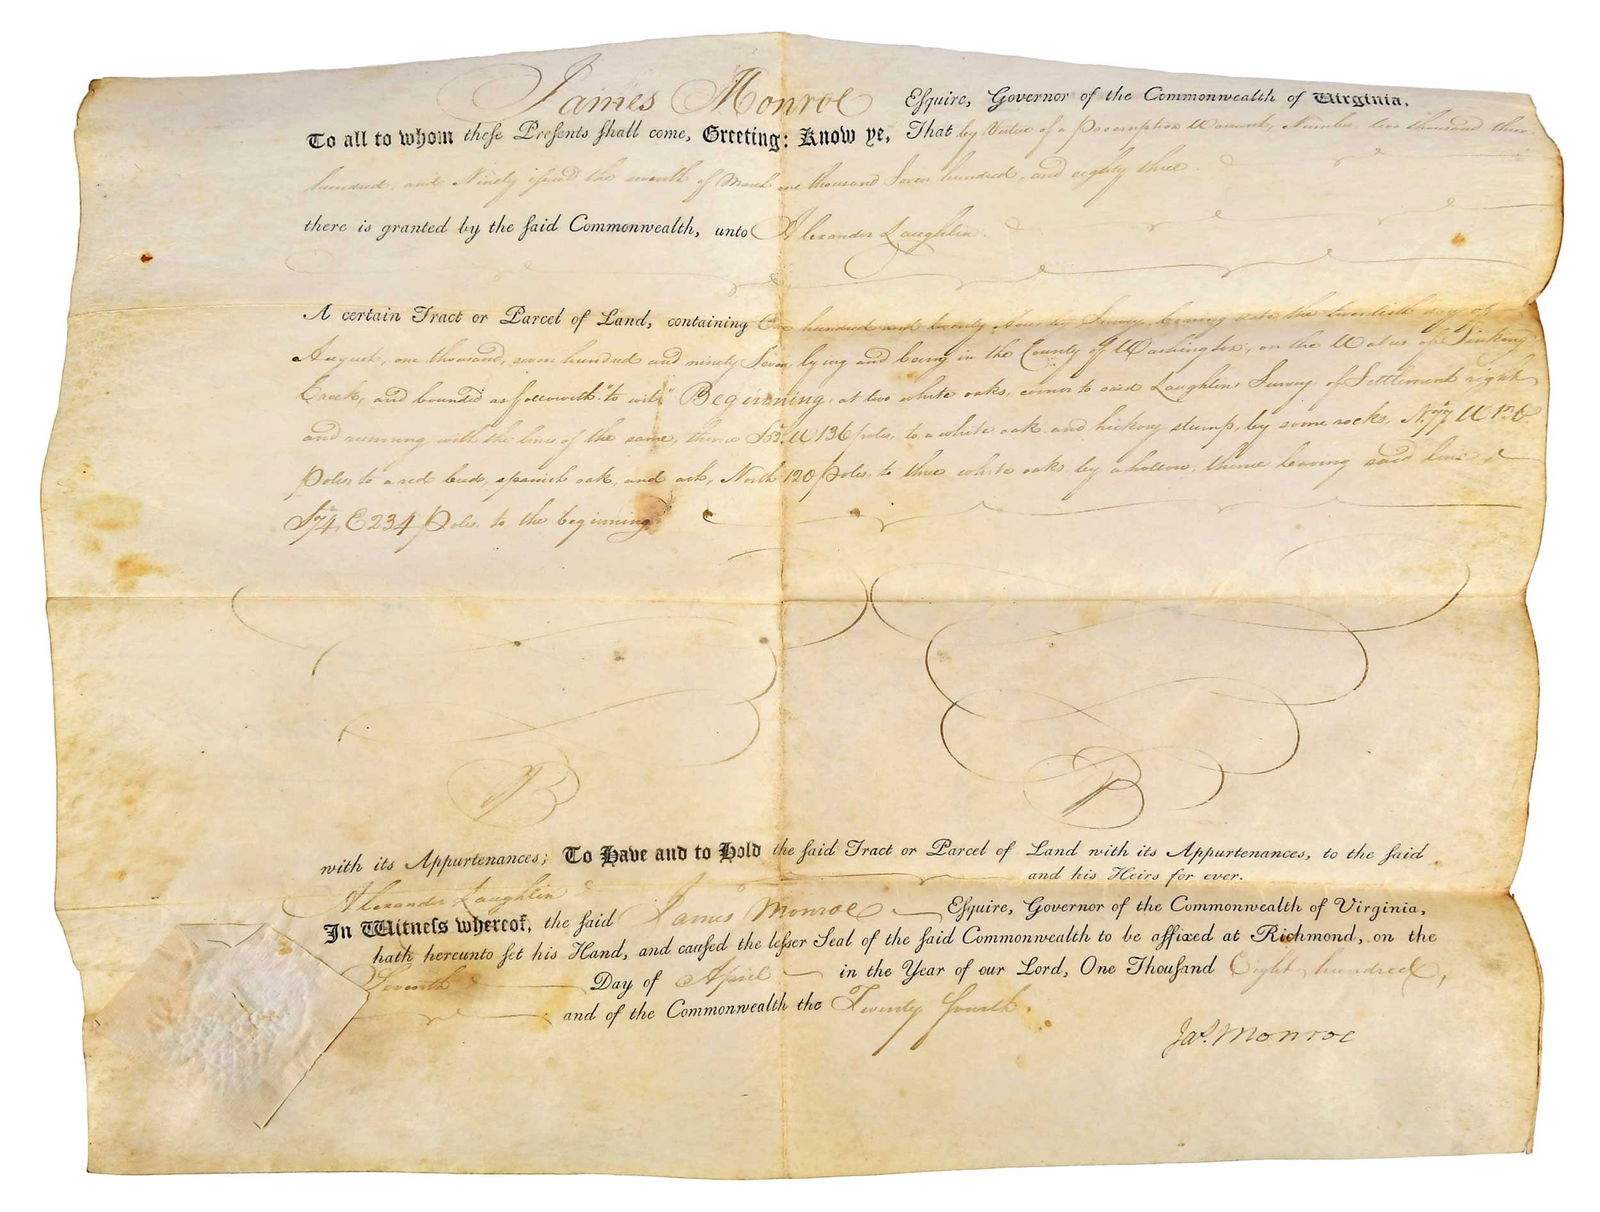 James Monroe Eſquire, Governor of the Commonwealth of Virginia,
To all to whom theſe Preſents ſhall come, Greeting: Know ye, That by Virtue of a Preemption Warrant, Number two thousand three
hundred and Ninety iſsued the seventh of March one thousand Seven hundred, and eighty three.
there is granted by the ſaid Commonwealth, unto Alexander Laughlin.
A certain Tract or Parcel of Land, containing One hundred and twenty Acres by Survey, bearing date the twentieth day of
August, one thousand, seven hundred and ninety Seven, lying and being in the County of Washington, on the Waters of Sinking
Creek, and bounded as followeth "to wit" Beginning, at two white oaks, corner to said Laughlin's Survey of Settlement right
and running with the lines of the same, thence W 136 poles, to a white oak and hickory stump, by some rocks, W 136
Poles to a red bud, spanish oak, and ash, North 120 poles, to three white oaks by a hollow, thence leaving said line
S 74, E 234 Poles to the beginning
with its Appurtenances; To Have and to Hold the ſaid Tract or Parcel of Land with its Appurtenances, to the ſaid
Alexander Laughlin and his Heirs for ever.
In Witneſs whereof, the ſaid James Monroe Eſquire, Governor of the Commonwealth of Virginia,
hath hereunto ſet his Hand, and cauſed the leſſer Seal of the ſaid Commonwealth to be affixed at Richmond, on the
Seventh Day of April in the Year of our Lord, One Thouſand Eight hundred,
and of the Commonwealth the Twenty fourth.
Jas. Monroe